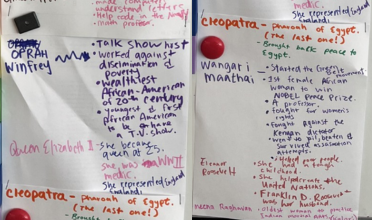 understand letters.
Help code in the
math professor.
OPRAH
Winfrey
• Talk show host
• Worked against
discrimination &
poverty
• wealthiest
African-American
of 20th century
• youngest & first
African American
to
a T.V. show.
Queen Elizabeth II
• She became
queen at 25.
• She was WWII
medic.
She represented England
cleopatra - pharoah of Egypt.
(The last one!)
• Brought
medic.
She represented England
cleopatra - pharoah of Egypt.
(The last one!)
• Brought back peace to
Egypt.
Wangari
maathai
- Started the Green
Belt movement
• 1st female African
woman to win
NOBEL peace Prize.
• A professor.
• fought for women's
rights.
• Fought against the
Kenyan dictator
• went to jail, beaten &
She survived assassination
attempts.
Eleanor
Roosevelt
• Helped poor people.
• She had a tough
childhood.
• She
United Nations.
• Franklin D. Roosevelt
was her husband.